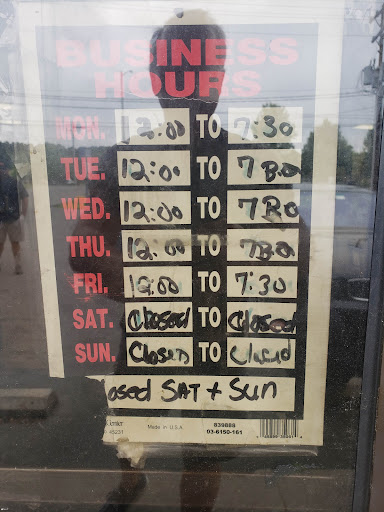 BUSINESS
HOURS
MON. 12:00 TO 7:30
TUE. 12:00 TO 7:30
WED. 12:00 TO 7:30
THU. 12:00 TO 7:30
FRI. 12:00 TO 7:30
SAT. Closed TO Closed
SUN. Closed TO Closed
osed SAT + Sun
45231
Made in U.S.A.
839888
03-6150-161